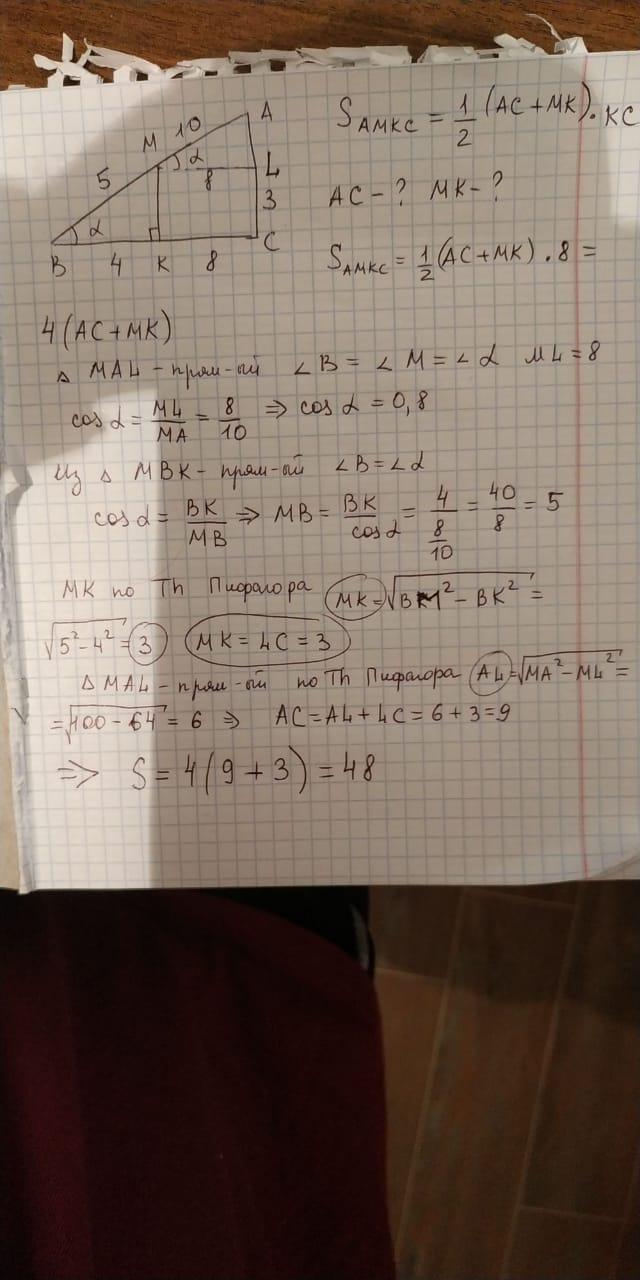 A
M 10
α
5
8
L
3
α
B 4 K 8 C
S_AMKC = 1/2 (AC + MK) · KC
AC - ? MK - ?
S_AMKC = 1/2 (AC + MK) · 8 =
4 (AC + MK)
Δ MAL - прям-ый ∠B = ∠M = ∠α ML = 8
cos α = ML/MA = 8/10 ⇒ cos α = 0,8
Из Δ MBK - прям-ый ∠B = ∠α
cos α = BK/MB ⇒ MB = BK/cos α = 4/(8/10) = 40/8 = 5
MK по Th Пифагора MK = √(BM² - BK²) =
√(5² - 4²) = 3 MK = LC = 3
Δ MAL - прям-ый по Th Пифагора AL = √(MA² - ML²) =
= √(100 - 64) = 6 ⇒ AC = AL + LC = 6 + 3 = 9
⇒ S = 4 (9 + 3) = 48